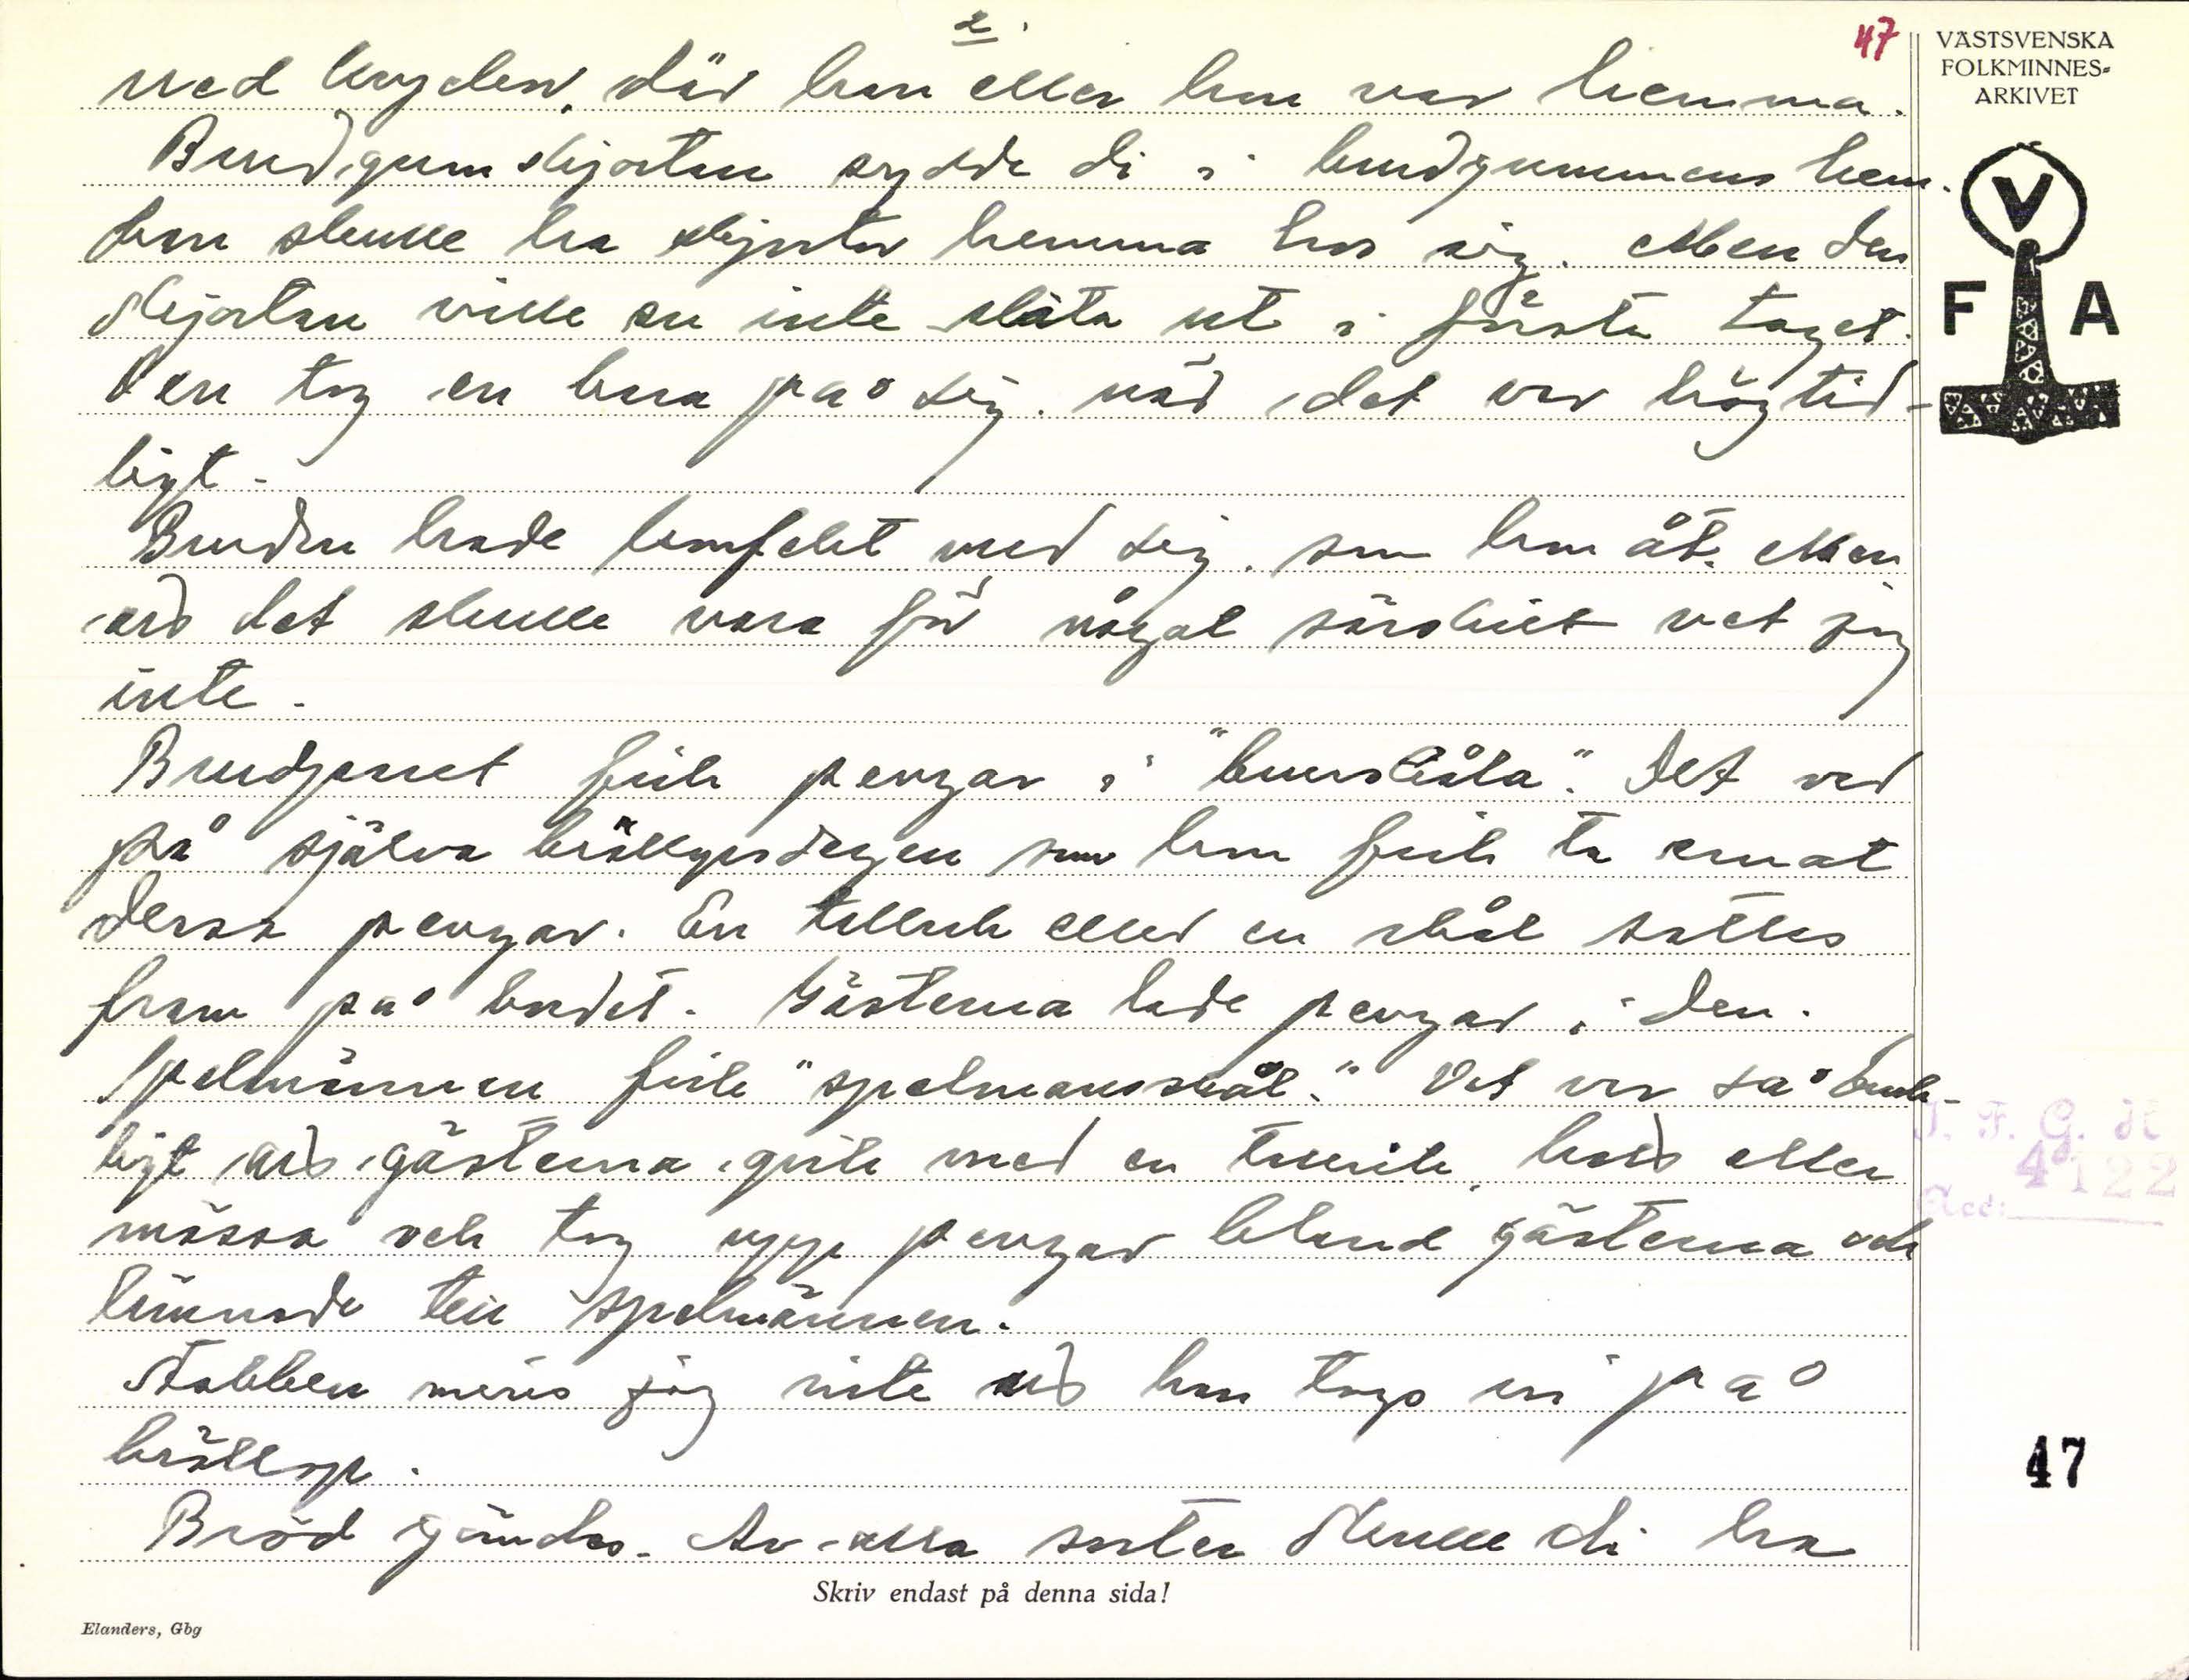 2.
47
VÄSTSVENSKA
FOLKMINNES-
ARKIVET
med bygden, där han eller hon var hemma.
Brudgumskjortan sydde di i brudgummens hem.
han skulle ha skjortor hemma hos sig. Men den
skjortan ville en inte slita ut i första taget.
Den tog en bara på sig när det var högtid-
ligt.
Bruden hade med sig, som hon åt. Men
om det skulle vara för något särskilt vet jag
inte.
Brudparet fick pengar i "bruraskåla". Det var
på själva bröllopsdagen som hon fick ta emot
dessa pengar. En tallrik eller en skål sattes
fram på bordet. Gästerna lade pengar i den.
Spelmännen fick "spelmansskål." Det var så bruk-
ligt att gästerna gick med en tallrik, hatt eller
mössa och tog upp pengar bland gästerna och
lämnade till spelmännen.
Stabben minns jag inte att han togs in på
bröllop.
Bröd gömdes. Av alla sorter skulle di ha
V
F A
I. F. G. H
4122
Acc:
47
Skriv endast på denna sida!
Elanders, Gbg